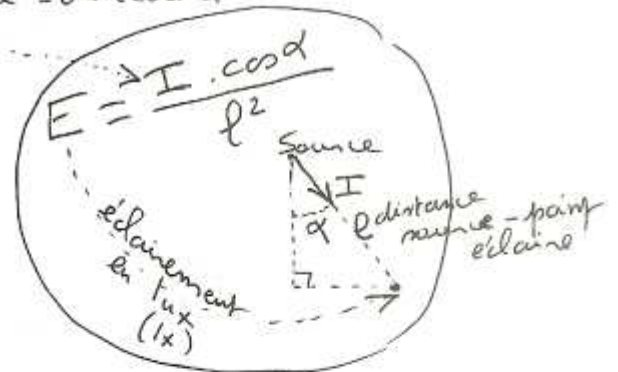 E = I . cosα / l²
Source
I
α
l distance
source - point
éclairé
éclairement
en lux
(lx)